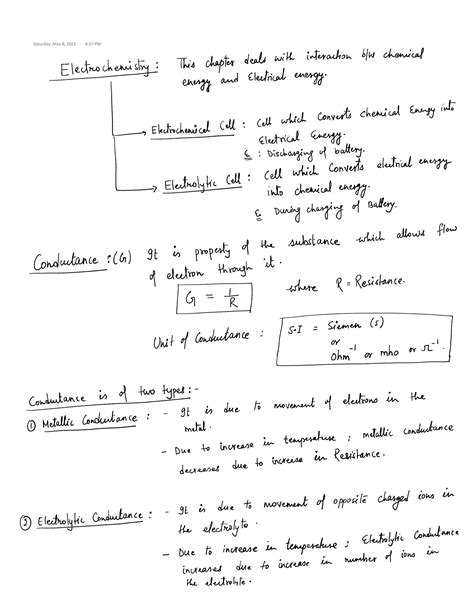 Saturday, May 8, 2021 6:57 PM
Electrochemistry : This chapter deals with interaction b/w chemical
energy and Electrical energy.
Electrochemical Cell : Cell which Converts chemical Energy into
Electrical Energy.
: Discharging of battery.
Electrolytic Cell : Cell which Converts electrical energy
into chemical energy.
During charging of Battery.
Conductance : (G) It is property of the substance which allows flow
of electron through it.
G = 1/R where R = Resistance.
Unit of Conductance : S.I = Siemen (s)
or
Ohm⁻¹ or mho or Ω⁻¹.
Conductance is of two types :-
① Metallic Conductance : - It is due to movement of electrons in the
metal.
- Due to increase in temperature ; metallic conductance
decreases due to increase in Resistance.
② Electrolytic Conductance : - It is due to movement of opposite charged ions in
the electrolyte.
- Due to increase in temperature ; Electrolytic Conductance
increases due to increase in number of ions in
the electrolyte.